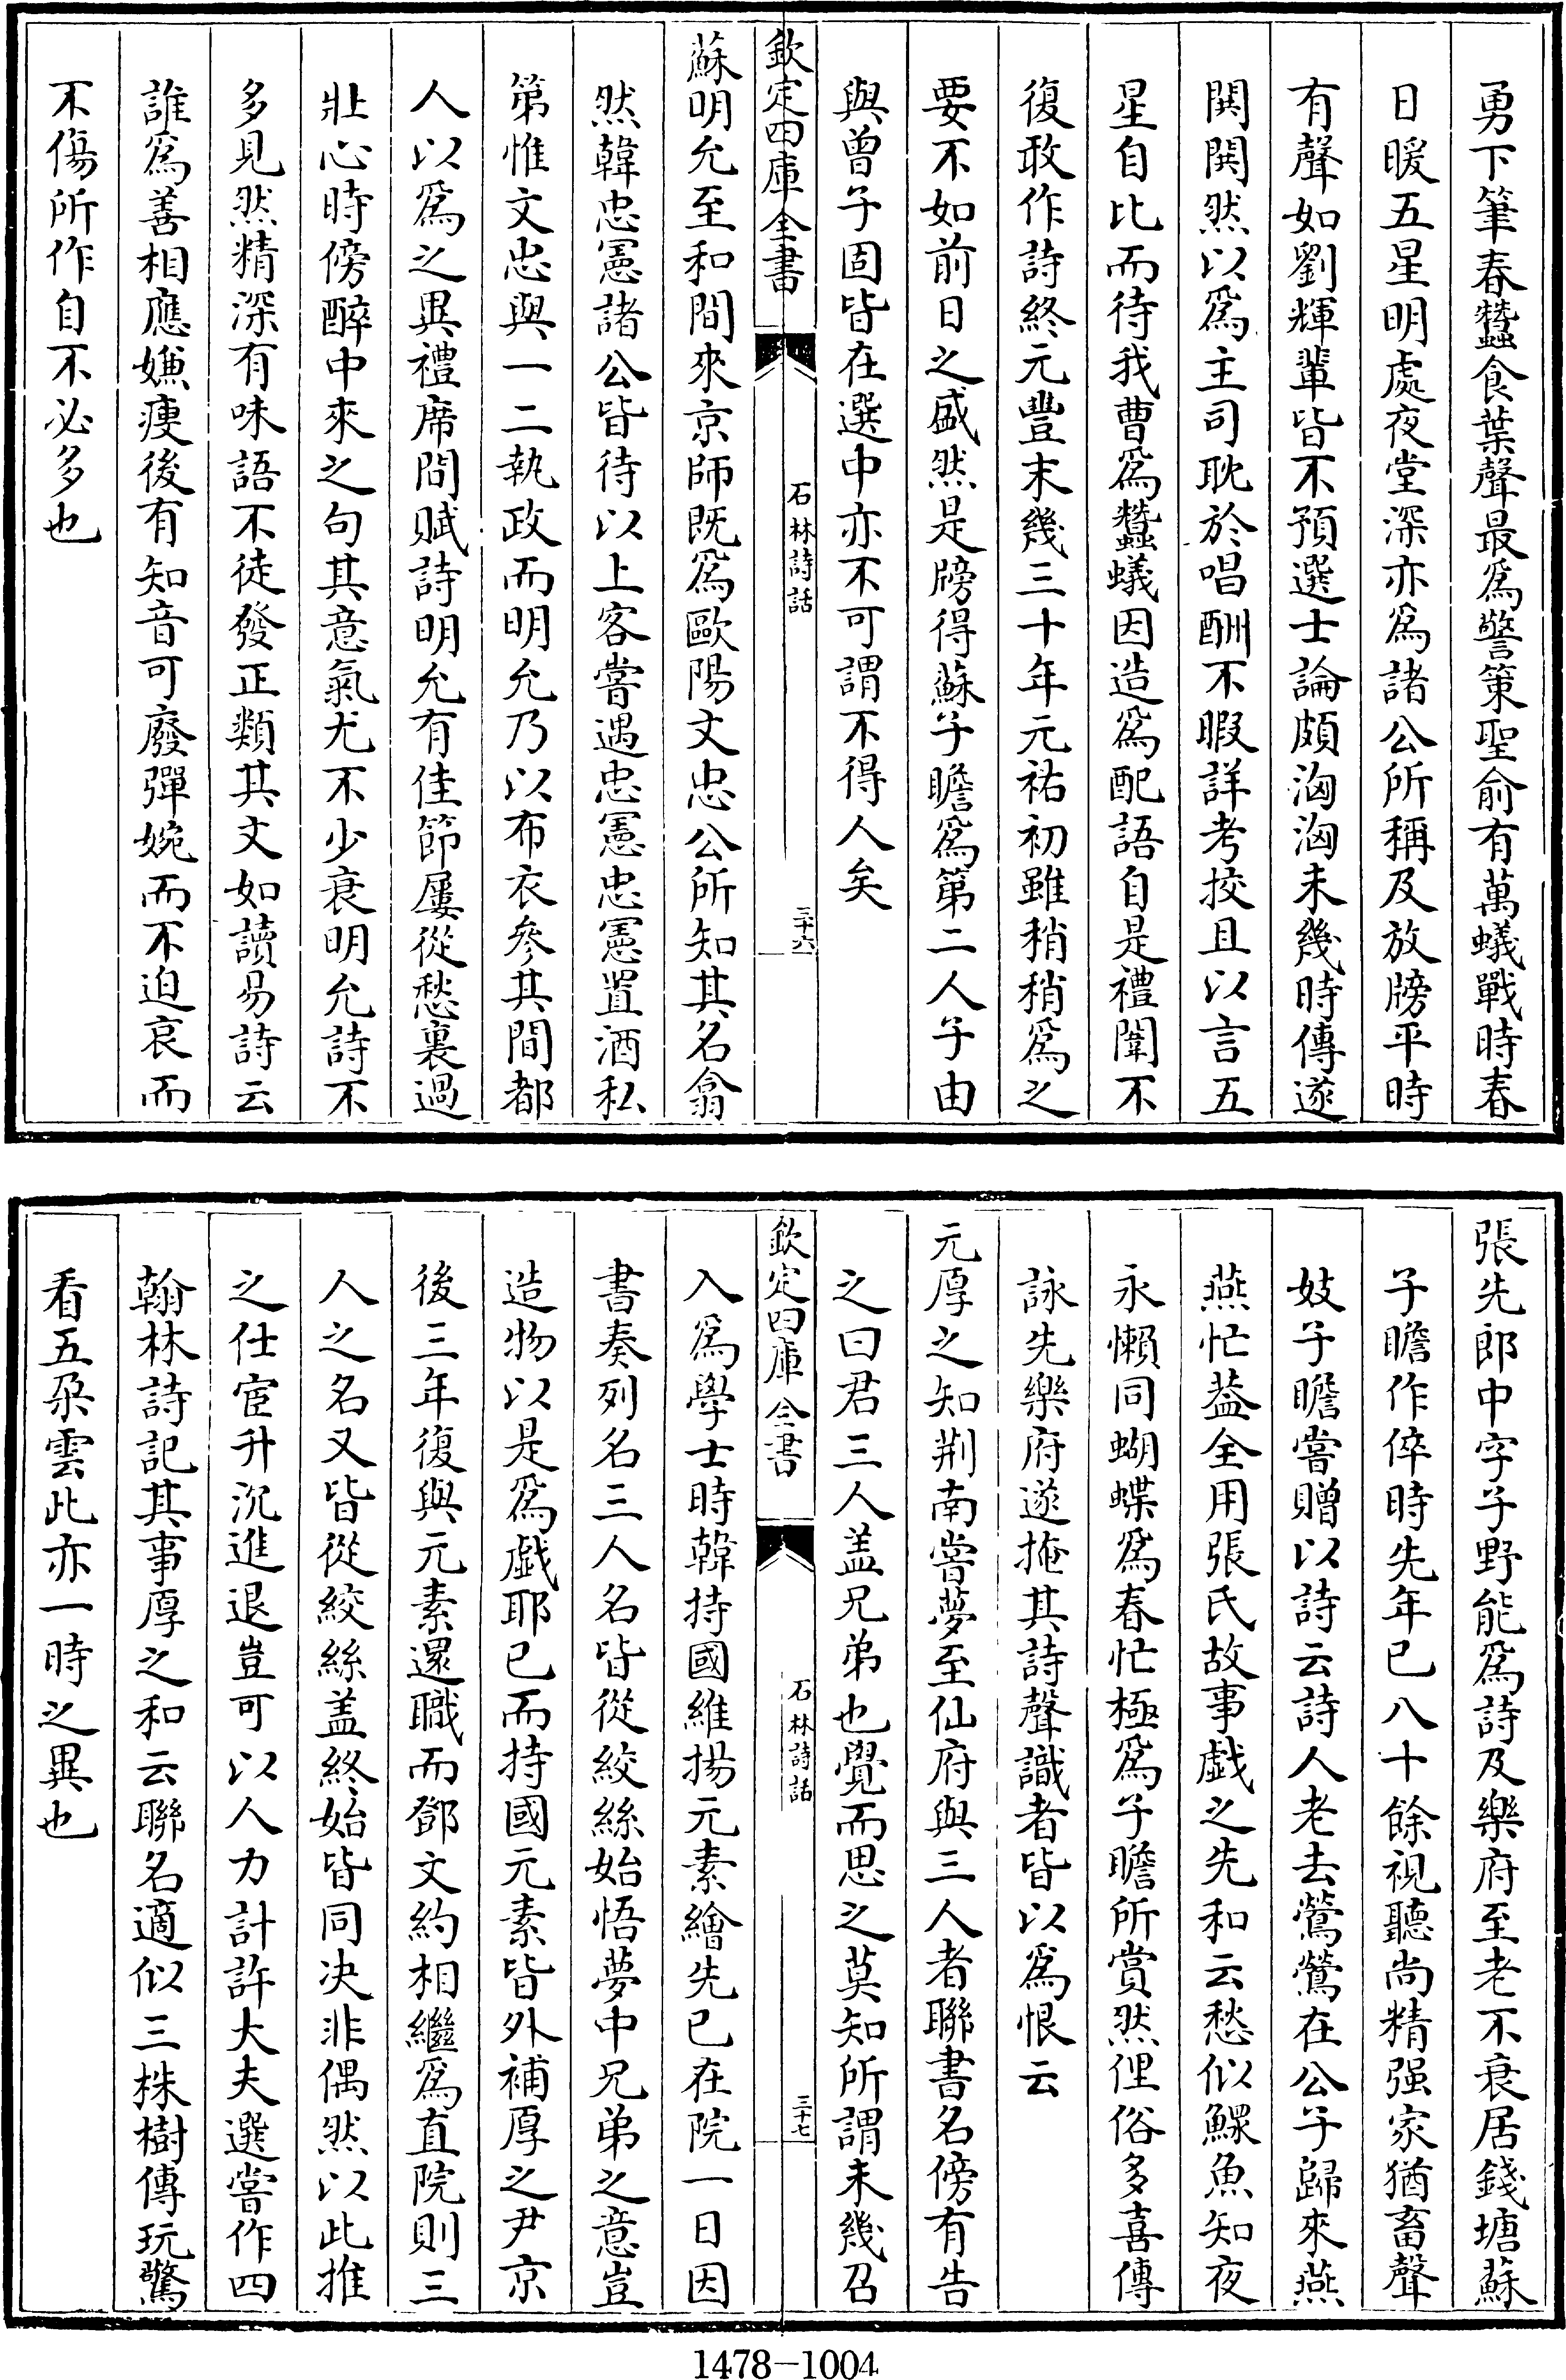 勇下筆春蠶食葉聲最爲警策聖俞有萬蟻戰時春
日暖五星明處夜堂深亦爲諸公所稱及放牓平時
有聲如劉輝輩皆不預選士論頗洶洶未幾時傳遂
閧閧然以爲主司耽於唱酬不暇詳考挍且以言五
星自比而待我曹爲蠶蟻因造爲配語自是禮闈不
復敢作詩終元豐末幾三十年元祐初雖稍稍爲之
要不如前日之盛然是牓得蘇子瞻爲第二人子由
與曾子固皆在選中亦不可謂不得人矣
欽定四庫全書
石林詩話
三十六
蘇明允至和間來京師既爲歐陽文忠公所知其名翕
然韓忠憲諸公皆待以上客嘗遇忠憲忠憲置酒私
第惟文忠與一二執政而明允乃以布衣參其間都
人以爲之異禮席間賦詩明允有佳節屢從愁裏過
壯心時傍醉中來之句其意氣尤不少衰明允詩不
多見然精深有味語不徒發正類其文如讀易詩云
誰爲善相應嫌瘦後有知音可廢彈婉而不迫哀而
不傷所作自不必多也
張先郎中字子野能爲詩及樂府至老不衰居錢塘蘇
子瞻作倅時先年已八十餘視聽尚精强家猶畜聲
妓子瞻嘗贈以詩云詩人老去鶯鶯在公子歸來燕
燕忙葢全用張氏故事戯之先和云愁似鰥魚知夜
永懶同蝴蝶爲春忙極爲子瞻所賞然俚俗多喜傳
詠先樂府遂掩其詩聲識者皆以爲恨云
元厚之知荆南嘗夢至仙府與三人者聯書名傍有告
之曰君三人盖兄弟也覺而思之莫知所謂未幾召
欽定四庫全書
石林詩話
三十七
入爲學士時韓持國維揚元素繪先已在院一日因
書奏列名三人名皆從絞絲始悟夢中兄弟之意豈
造物以是爲戯耶已而持國元素皆外補厚之尹京
後三年復與元素還職而鄧文約相繼爲直院則三
人之名又皆從絞絲盖終始皆同决非偶然以此推
之仕宦升沉進退豈可以人力計許大夫選嘗作四
翰林詩記其事厚之和云聯名適似三株樹傳玩驚
看五朶雲此亦一時之異也
1478-1004